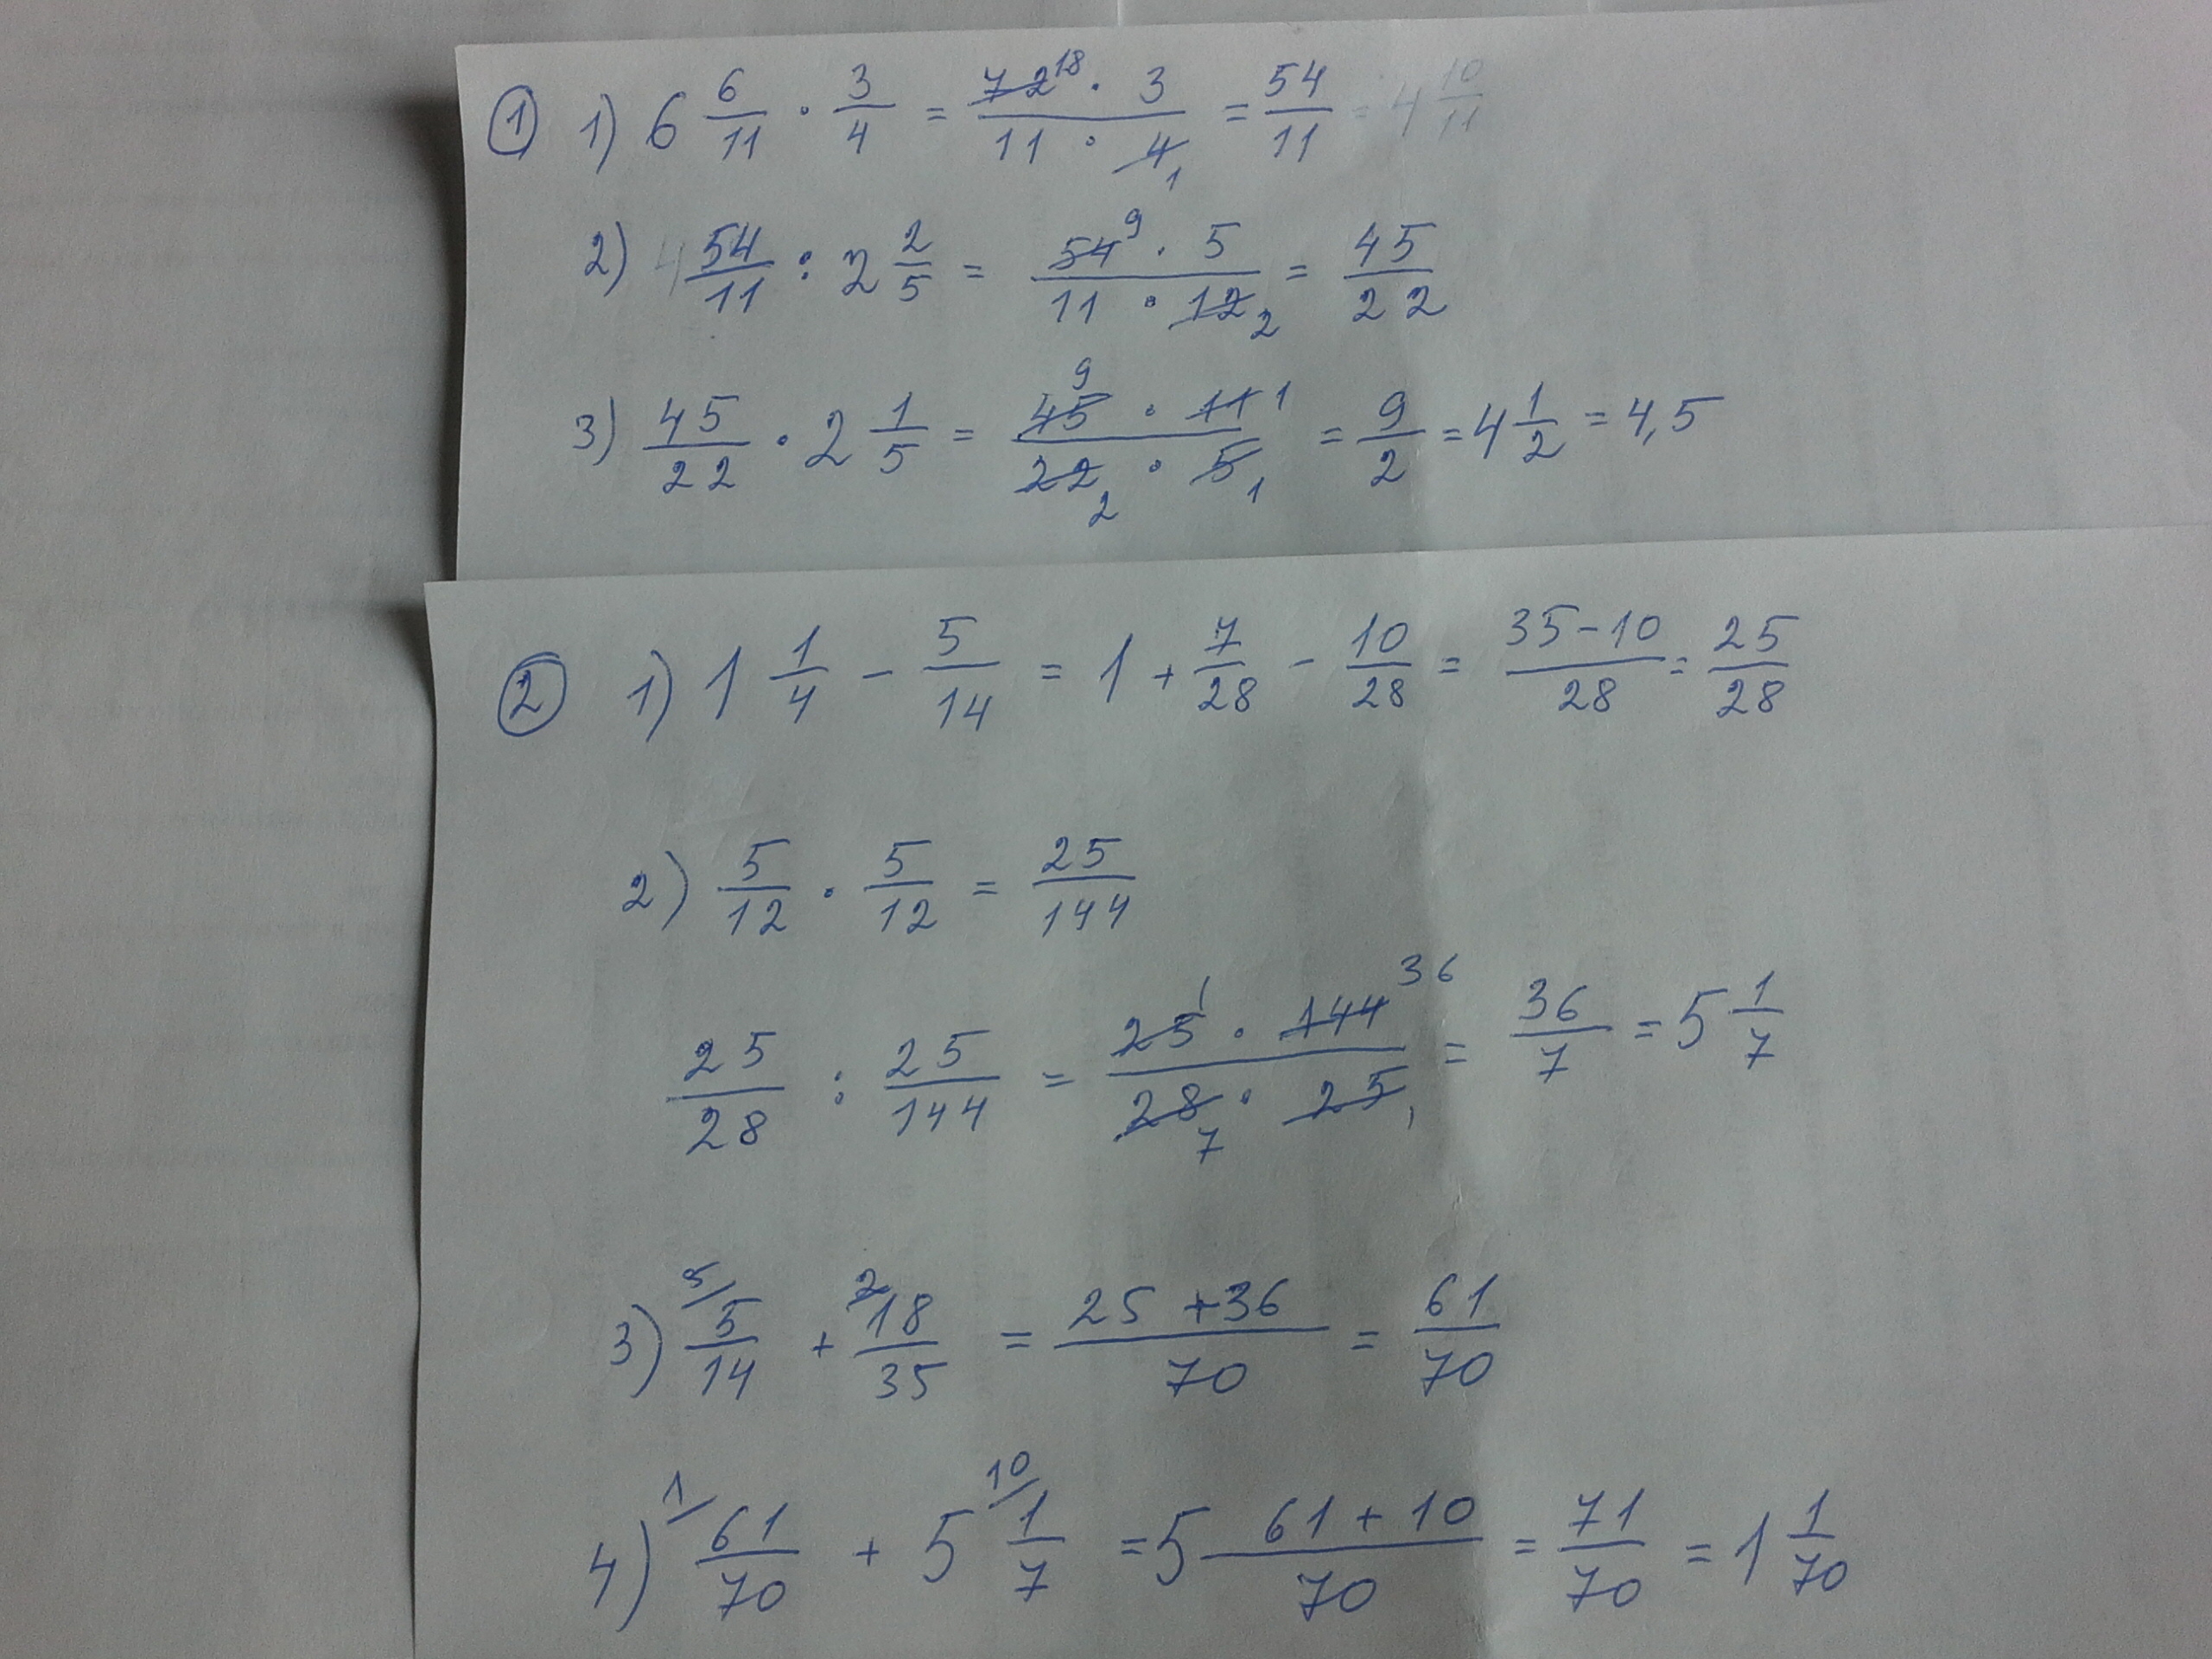 ① 1) 6 6/11 · 3/4 = 72 18 · 3 / 11 · 4 1 = 54/11 = 4 10/11
2) 4 54/11 : 2 2/5 = 54 9 · 5 / 11 · 12 2 = 45/22
3) 45/22 · 2 1/5 = 45 9 · 11 1 / 22 2 · 5 1 = 9/2 = 4 1/2 = 4,5
② 1) 1 1/4 − 5/14 = 1 + 7/28 − 10/28 = 35−10/28 = 25/28
2) 5/12 · 5/12 = 25/144
25/28 : 25/144 = 25 1 · 144 36 / 28 7 · 25 1 = 36/7 = 5 1/7
3) 5/ 5/14 + 2/ 18/35 = 25+36/70 = 61/70
4) 1/ 61/70 + 5 10/ 1/7 = 5 61+10/70 = 71/70 = 1 1/70